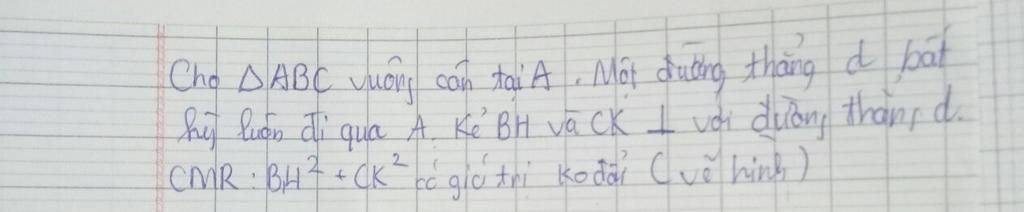 Cho △ABC vuông cân tại A. Một đường thẳng d bất
kỳ luôn đi qua A. Kẻ BH và CK ⊥ với đường thẳng d.
CMR: BH² + CK² có giá trị ko đổi (vẽ hình)